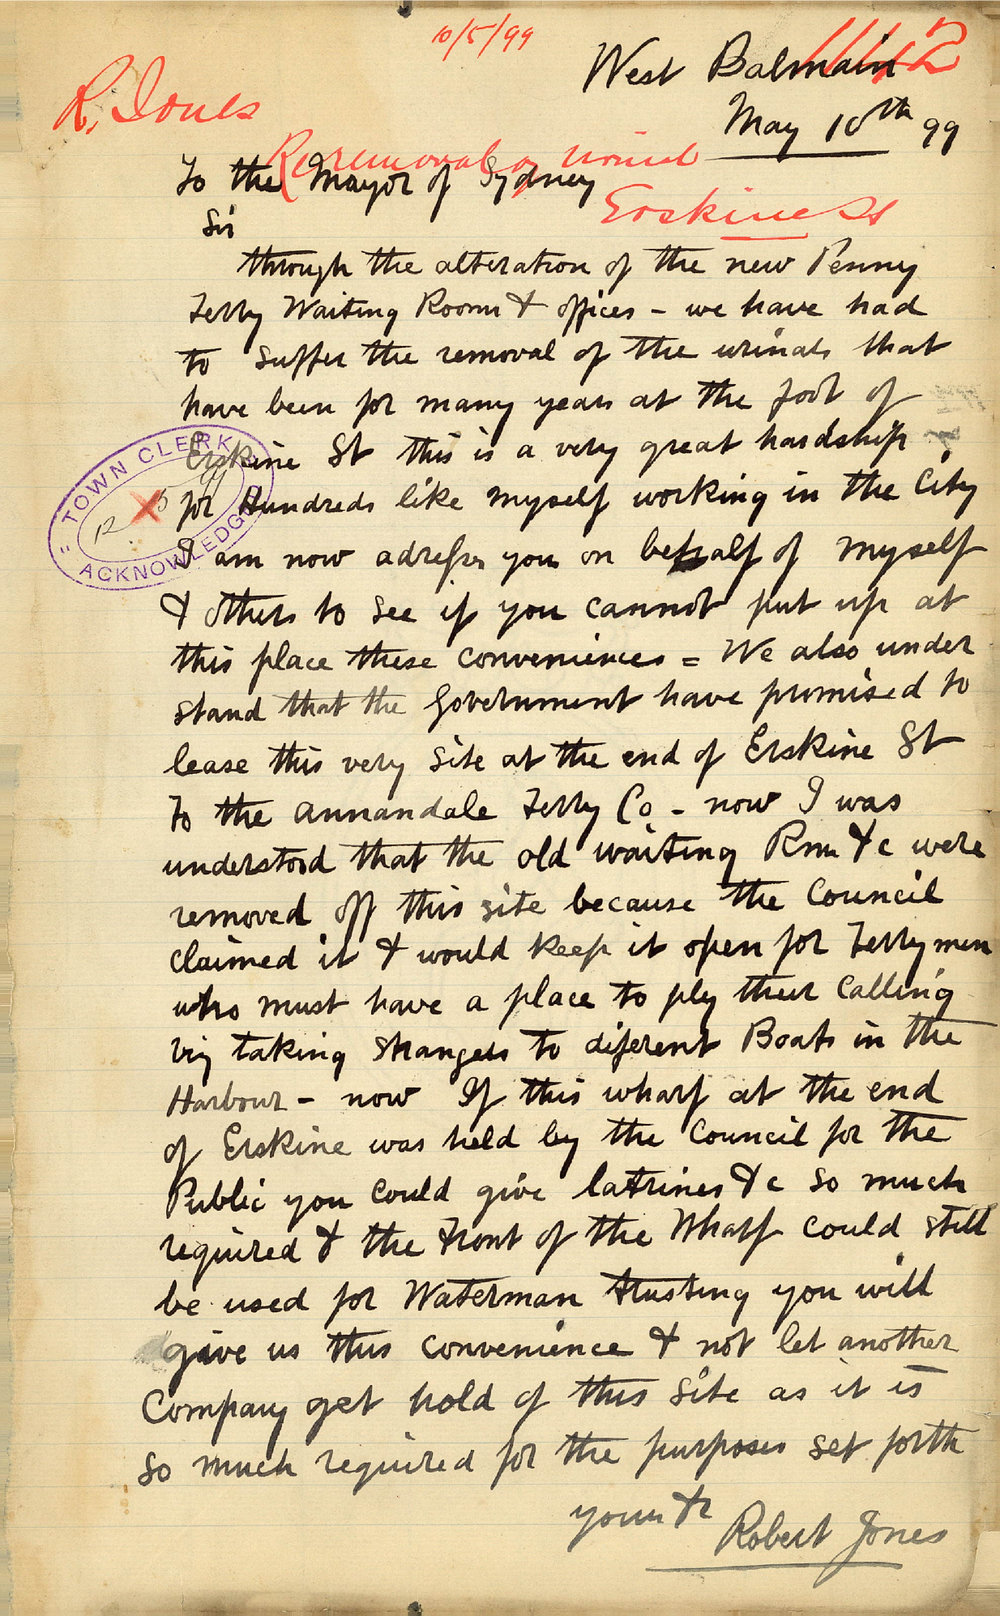 10/5/99
1142
West Balmain
R. Jones
May 10th 99
Re removal of urinal
To the Mayor of Sydney
Erskine St
Sir
through the alteration of the new Penny
Ferry Waiting Room & offices - we have had
to suffer the removal of the urinals that
have been for many years at the foot of
Erskine St this is a very great hardship
for Hundreds like myself working in the City
I am now adress you on behalf of myself
& others to see if you cannot put up at
this place these conveniences = We also under
stand that the Government have promised to
lease this very site at the end of Erskine St
to the Annandale Ferry Co - now I was
understood that the old waiting Rm &c were
removed off this site because the Council
claimed it & would keep it open for Ferrymen
who must have a place to ply their Calling
viz taking strangers to diferent Boats in the
Harbour - now If this wharf at the end
of Erskine was held by the Council for the
Public you could give latrines &c so much
required & the front of the Wharf could still
be used for Waterman trusting you will
give us this convenience & not let another
Company get hold of this site as it is
so much required for the purposes set forth
yours &c
Robert Jones
TOWN CLERK
12 5 99
ACKNOWLEDGED